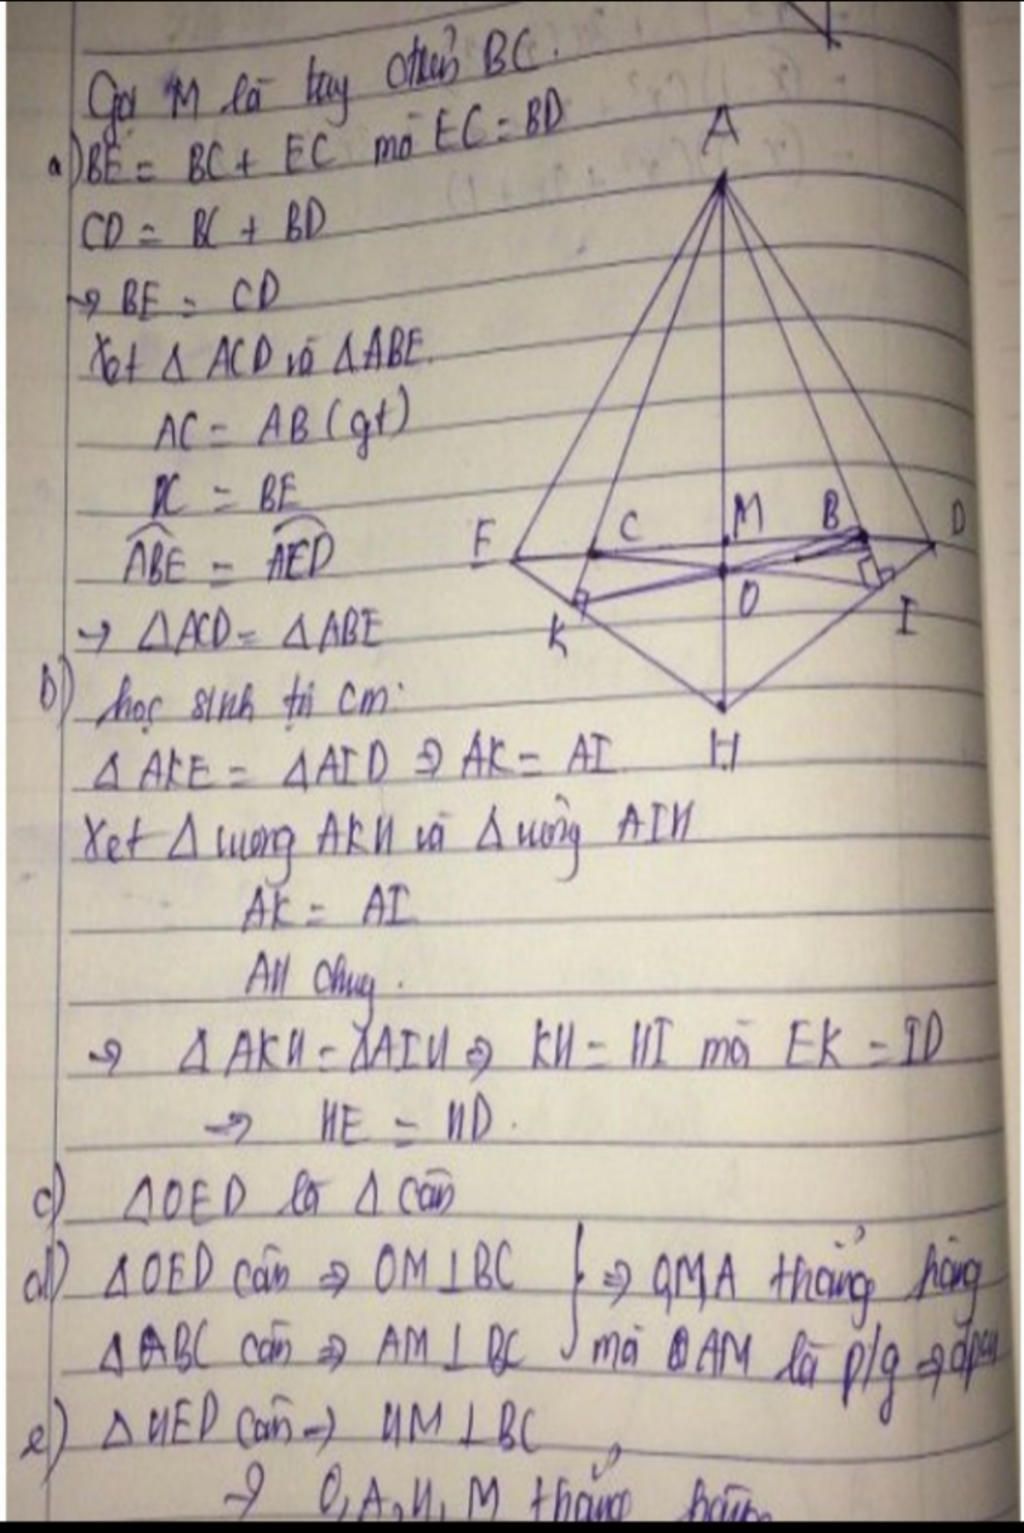 Gọi M là tug điểm BC.
a) BE = BC + EC mà EC = BD
CD = BC + BD
→ BE = CD
Xét Δ ACD và ΔABE.
AC = AB (gt)
DC = BE
ABE = AED
→ ΔACD = ΔABE
b) học sinh tự cm:
Δ AKE = ΔAID ⇒ AK = AI
Xét Δ vuông AKH và Δ vuông AIH
AK = AI
AH chug.
→ ΔAKH = ΔAIH ⇒ KH = HI mà EK = ID
→ HE = HD.
c) ΔOED là Δ cân
d) ΔOED cân ⇒ OM⊥BC } ⇒ O,M,A thẳng hàng
ΔABC cân ⇒ AM⊥BC mà AM là p/g ⇒ đpcm
e) ΔHED cân → HM⊥BC
→ O, A, H, M thẳng hàng
A
E C M B D
K O I
H